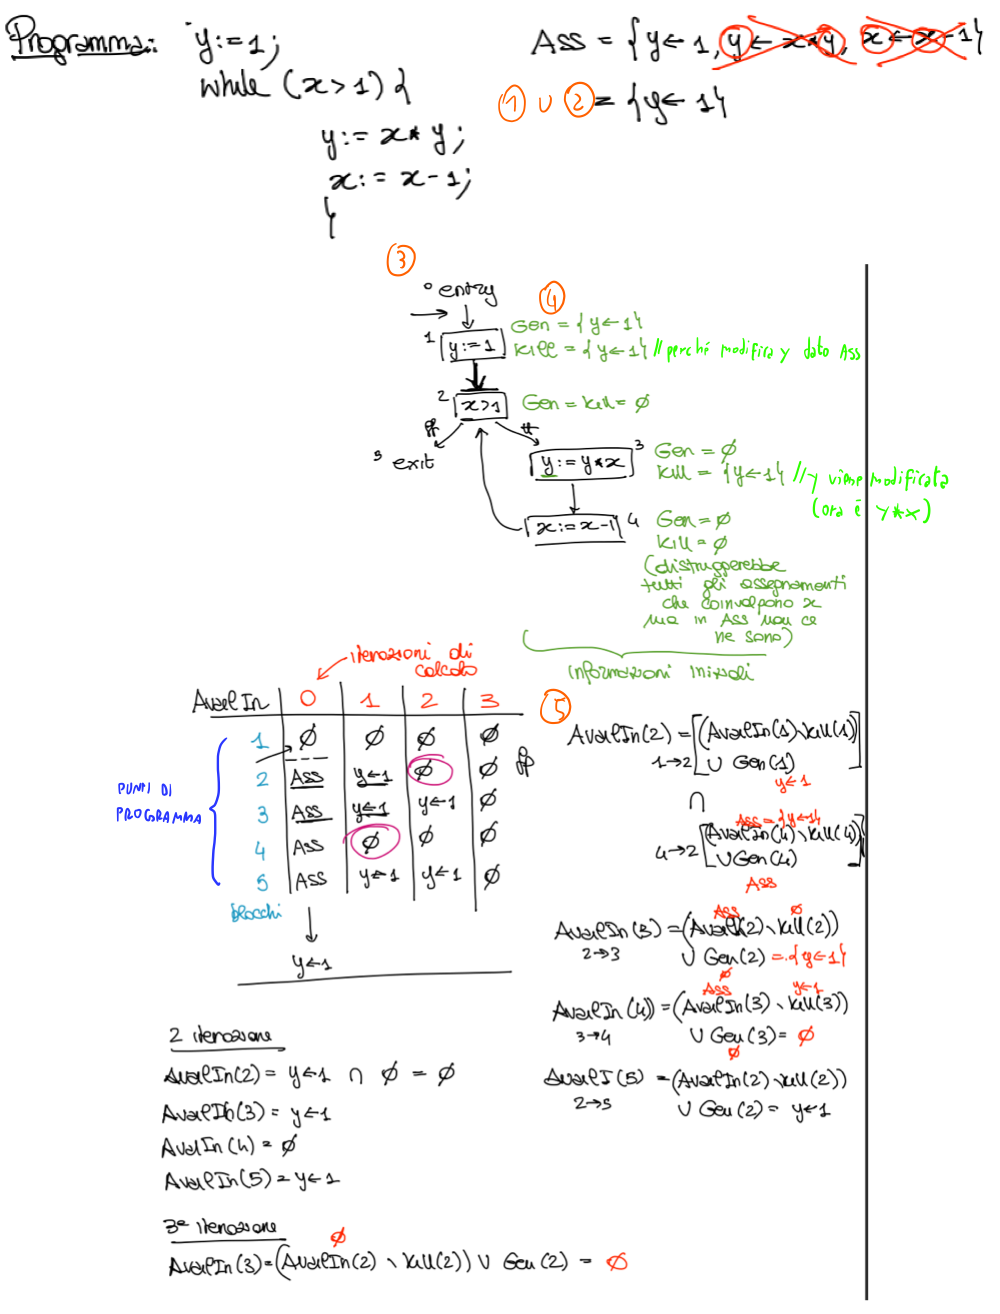 Programma: y:=1;
while (x>1) {
y:= x* y;
x:= x-1;
}
Ass = {y←1, y← x*y, x←x-1}
① ∪ ② = {y←1}
③
0 entry
④
1 y:=1
Gen = {y←1}
Kill = {y←1} // perché modifica y dato Ass
2 x>1
Gen = Kill = ∅
ff
tt
5 exit
y:=y*x 3
Gen = ∅
Kill = {y←1} // y viene modificata
(ora è y*x)
x:=x-1 4
Gen = ∅
Kill = ∅
(distruggerebbe
tutti gli assegnamenti
che coinvolgono x
ma in Ass non ce
ne sono)
informazioni iniziali
iterazioni di
calcolo
AvailIn 0 1 2 3
1 ∅ ∅ ∅ ∅
2 Ass y←1 ∅ ∅ fp
3 Ass y←1 y←1 ∅
4 Ass ∅ ∅ ∅
5 Ass y←1 y←1 ∅
PUNTI DI
PROGRAMMA
blocchi
y←1
⑤
AvailIn(2) = [(AvailIn(1)\Kill(1))
1→2 ∪ Gen(1)]
y←1
∩
Ass = {y←1}
4→2 [(AvailIn(4)\Kill(4))
∪ Gen(4)]
Ass
Ass ∅
AvailIn(3) = (AvailIn(2)\Kill(2))
2→3 ∪ Gen(2) = {y←1}
∅
Ass y←1
AvailIn(4)) = (AvailIn(3)\Kill(3))
3→4 ∪ Gen(3) = ∅
∅
AvailI(5) = (AvailIn(2)\Kill(2))
2→5 ∪ Gen(2) = y←1
2 iterazione
AvailIn(2) = y←1 ∩ ∅ = ∅
AvailIn(3) = y←1
AvailIn(4) = ∅
AvailIn(5) = y←1
3ª iterazione
∅
AvailIn(3) = (AvailIn(2) \ Kill(2)) ∪ Gen(2) = ∅